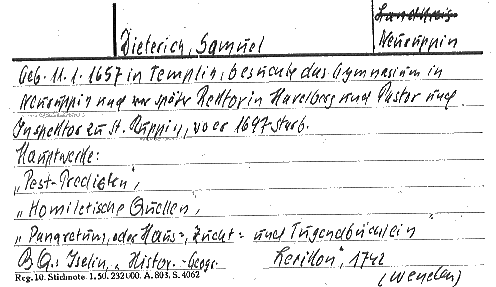 Landkreis
Dieterich, Samuel
Neuruppin
Geb. 11.1.1657 in Templin, besuchte das Gymnasium in
Neuruppin und war später Rektor in Havelberg und Pastor und
Inspektor zu Alt Ruppin, wo er 1697 starb.
Hauptwerke:
„Pest-Predigten",
„Homiletische Quellen,
„ oder Haus-, Zucht- und Tugendbüchlein
BG.: Iselin, „Histor.-Geogr. Lexikon", 1742
Reg. 10. Stichnote. 1. 50. 232000. A. 803. S. 4062